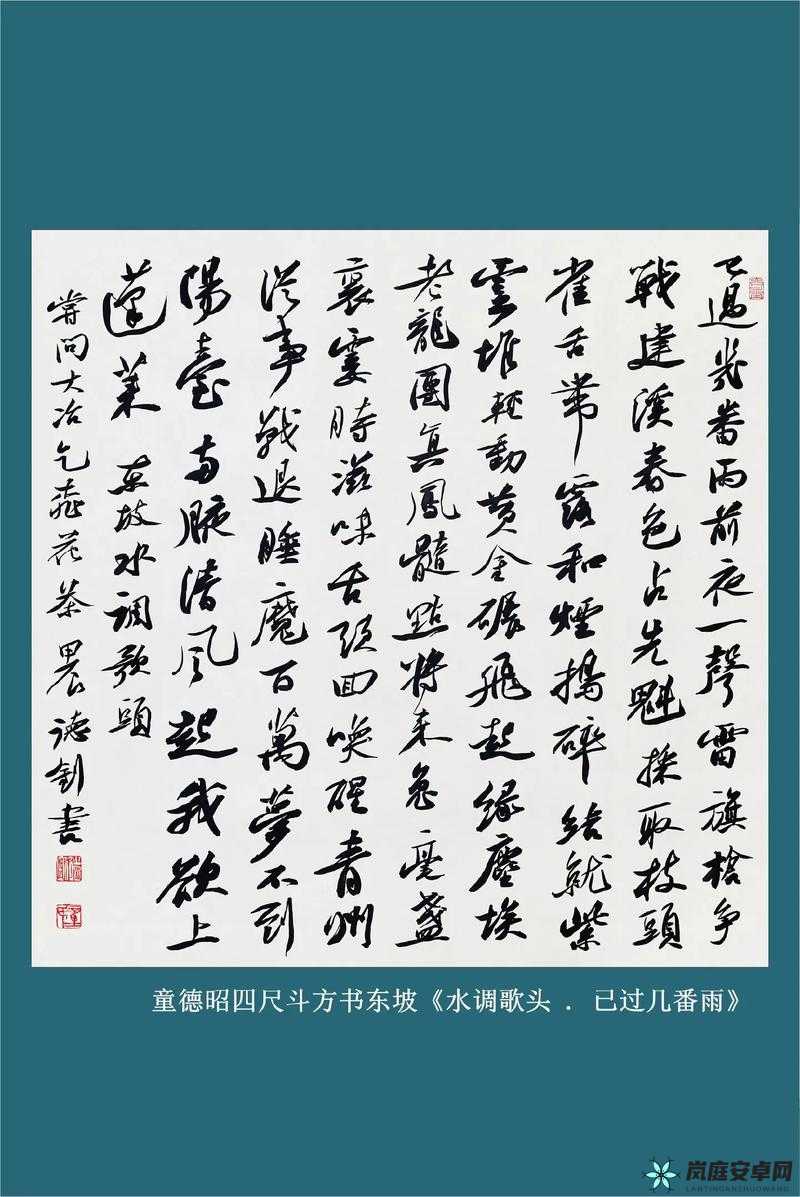 已過幾番雨前夜一聲雷旗槍争
戰建溪春色占先魁採取枝頭
雀舌帶露和煙搗碎結就紫
雲堆輕動黄金碾飛起緑塵埃
老龍團真鳳髓點將来兔毫盞
裏霎時滋味舌頭回喚醒青州
從事戰退睡魔百萬夢不到
陽臺兩腋清風起我欲上
蓬萊 東坡水調歌頭
嘗問大冶乞桃花茶 德釗書
童德昭四尺斗方书东坡《水调歌头 . 已过几番雨》
岚庭安卓网
LANTINGANZHUOWANG